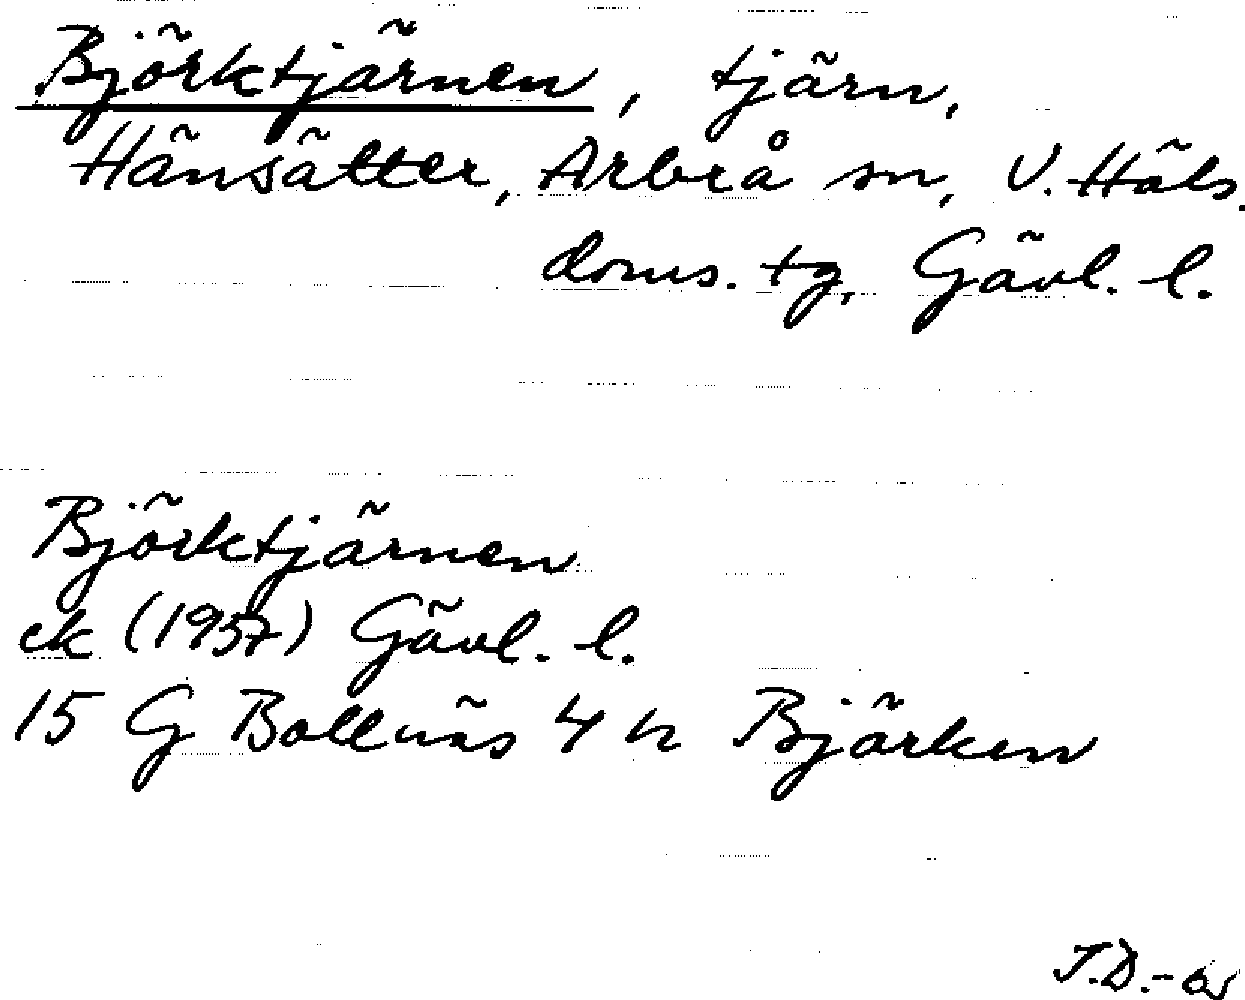 Björktjärnen, tjärn,
Hänsätter, Arbrå sn, V. Häls.
doms. tg, Gävl. l.
Björktjärnen
ek (1957) Gävl. l.
15 G Bollnäs 4 h Björken
J.D.-